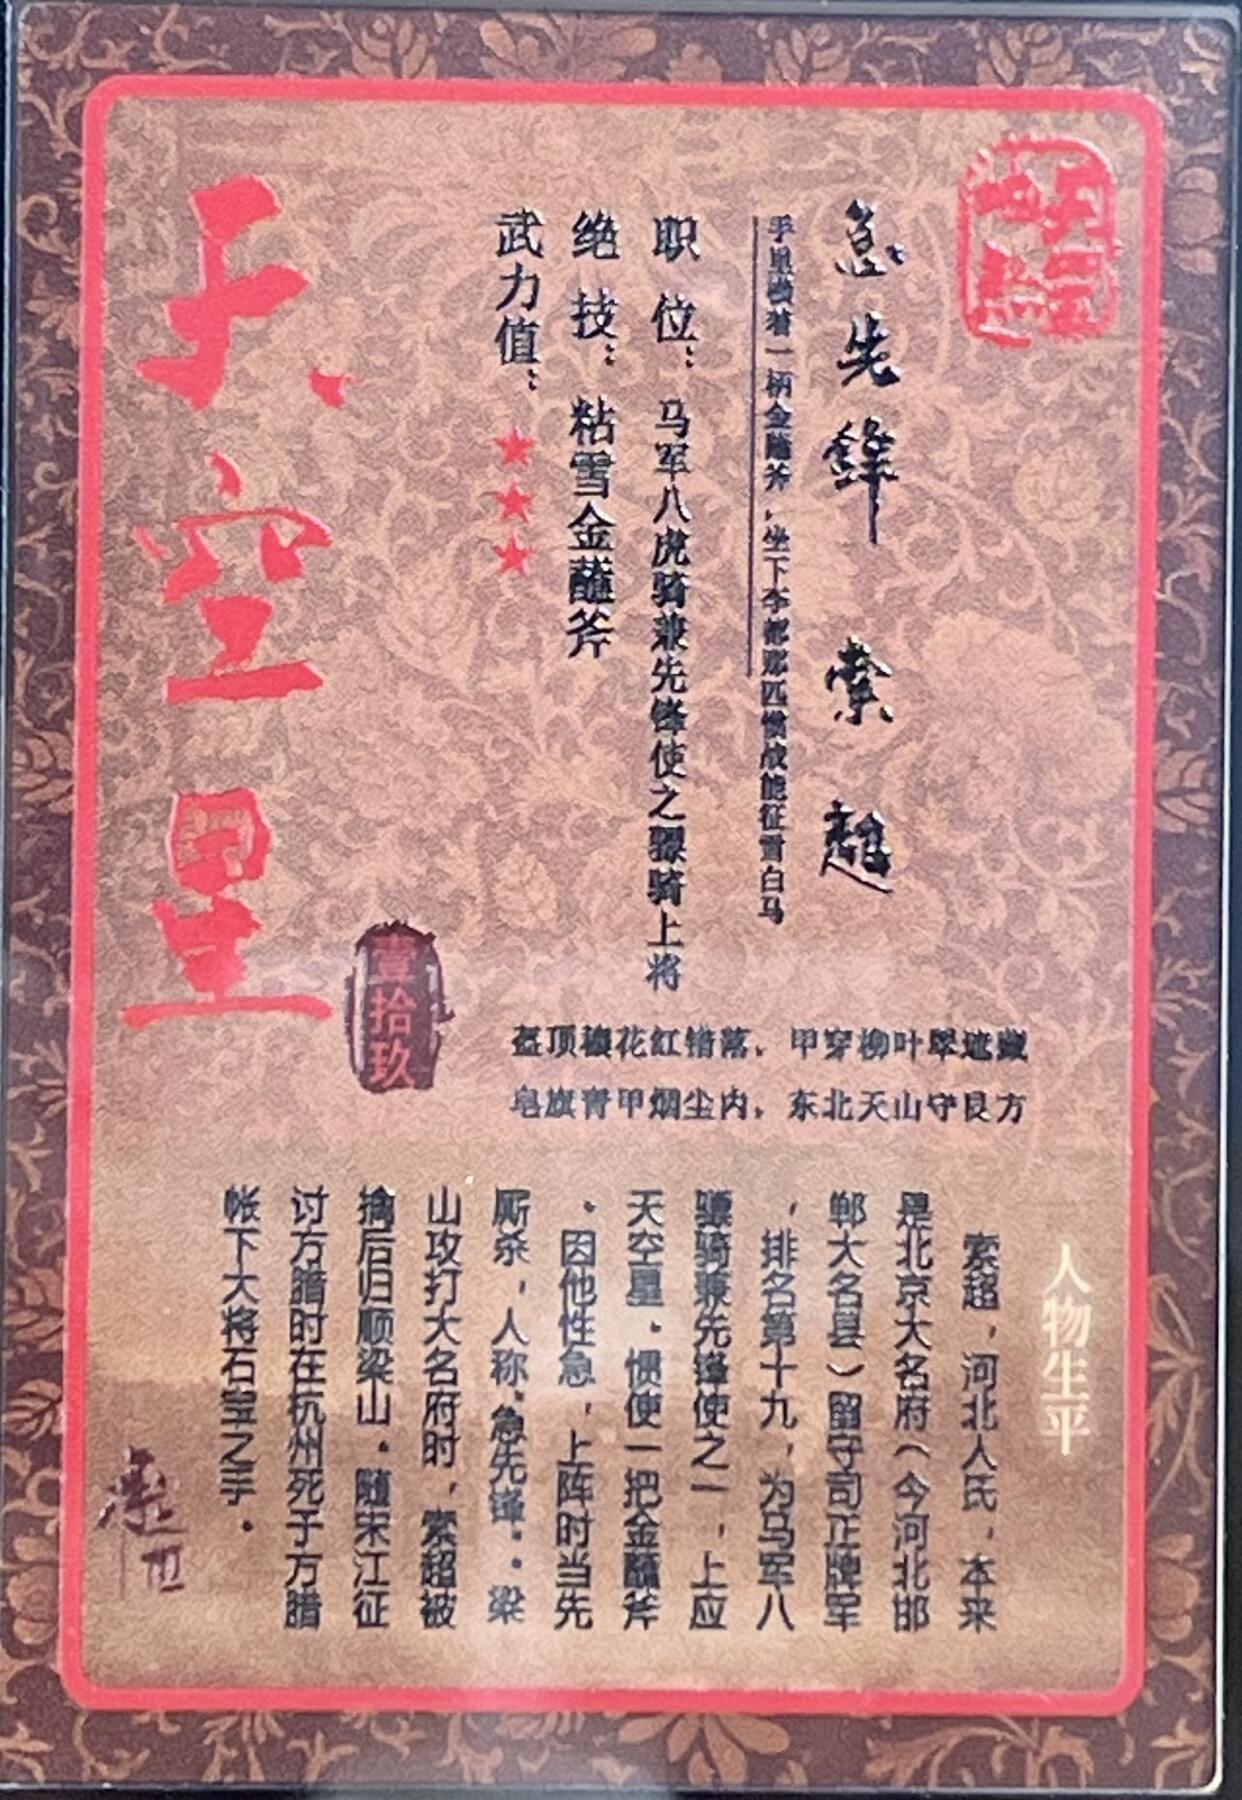 急先锋 索超
手里横着一柄金蘸斧，坐下李都那匹惯战能征雪白马
职位：马军八虎骑兼先锋使之骠骑上将
绝技：粘雪金蘸斧
武力值：★★★
天空星
壹拾玖
盔顶穰花红错落，甲穿柳叶翠遮藏
皂旗青甲烟尘内，东北天山守艮方
人物生平
索超，河北人氏，本来
是北京大名府（今河北邯
郸大名县）留守司正牌军
，排名第十九，为马军八
骠骑兼先锋使之一，上应
天空星。惯使一把金蘸斧
。因他性急，上阵时当先
厮杀，人称"急先锋"。梁
山攻打大名府时，索超被
擒后归顺梁山。随宋江征
讨方腊时在杭州死于方腊
帐下大将石宝之手。